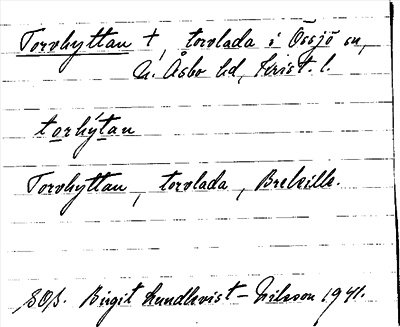 Torvhyttan †, torvlada i Össjö sn,
N. Åsbo hd, Krist. l.
torhýtan
Torvhyttan, torvlada, Brelville.
SOS. Birgit Lundkvist-Nilsson 1941.